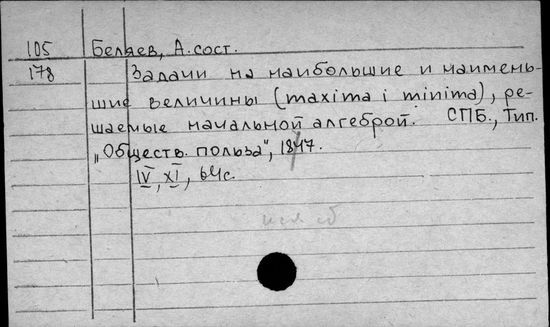 105 Беляев, А. сост.
178 Задачи на наибольшие и наимень-
шие величины (maxima i minima), ре-
шаемые начальной алгеброй. СПБ., Тип.
"Обществ. польза", 1847.
IV, XI, 64с.